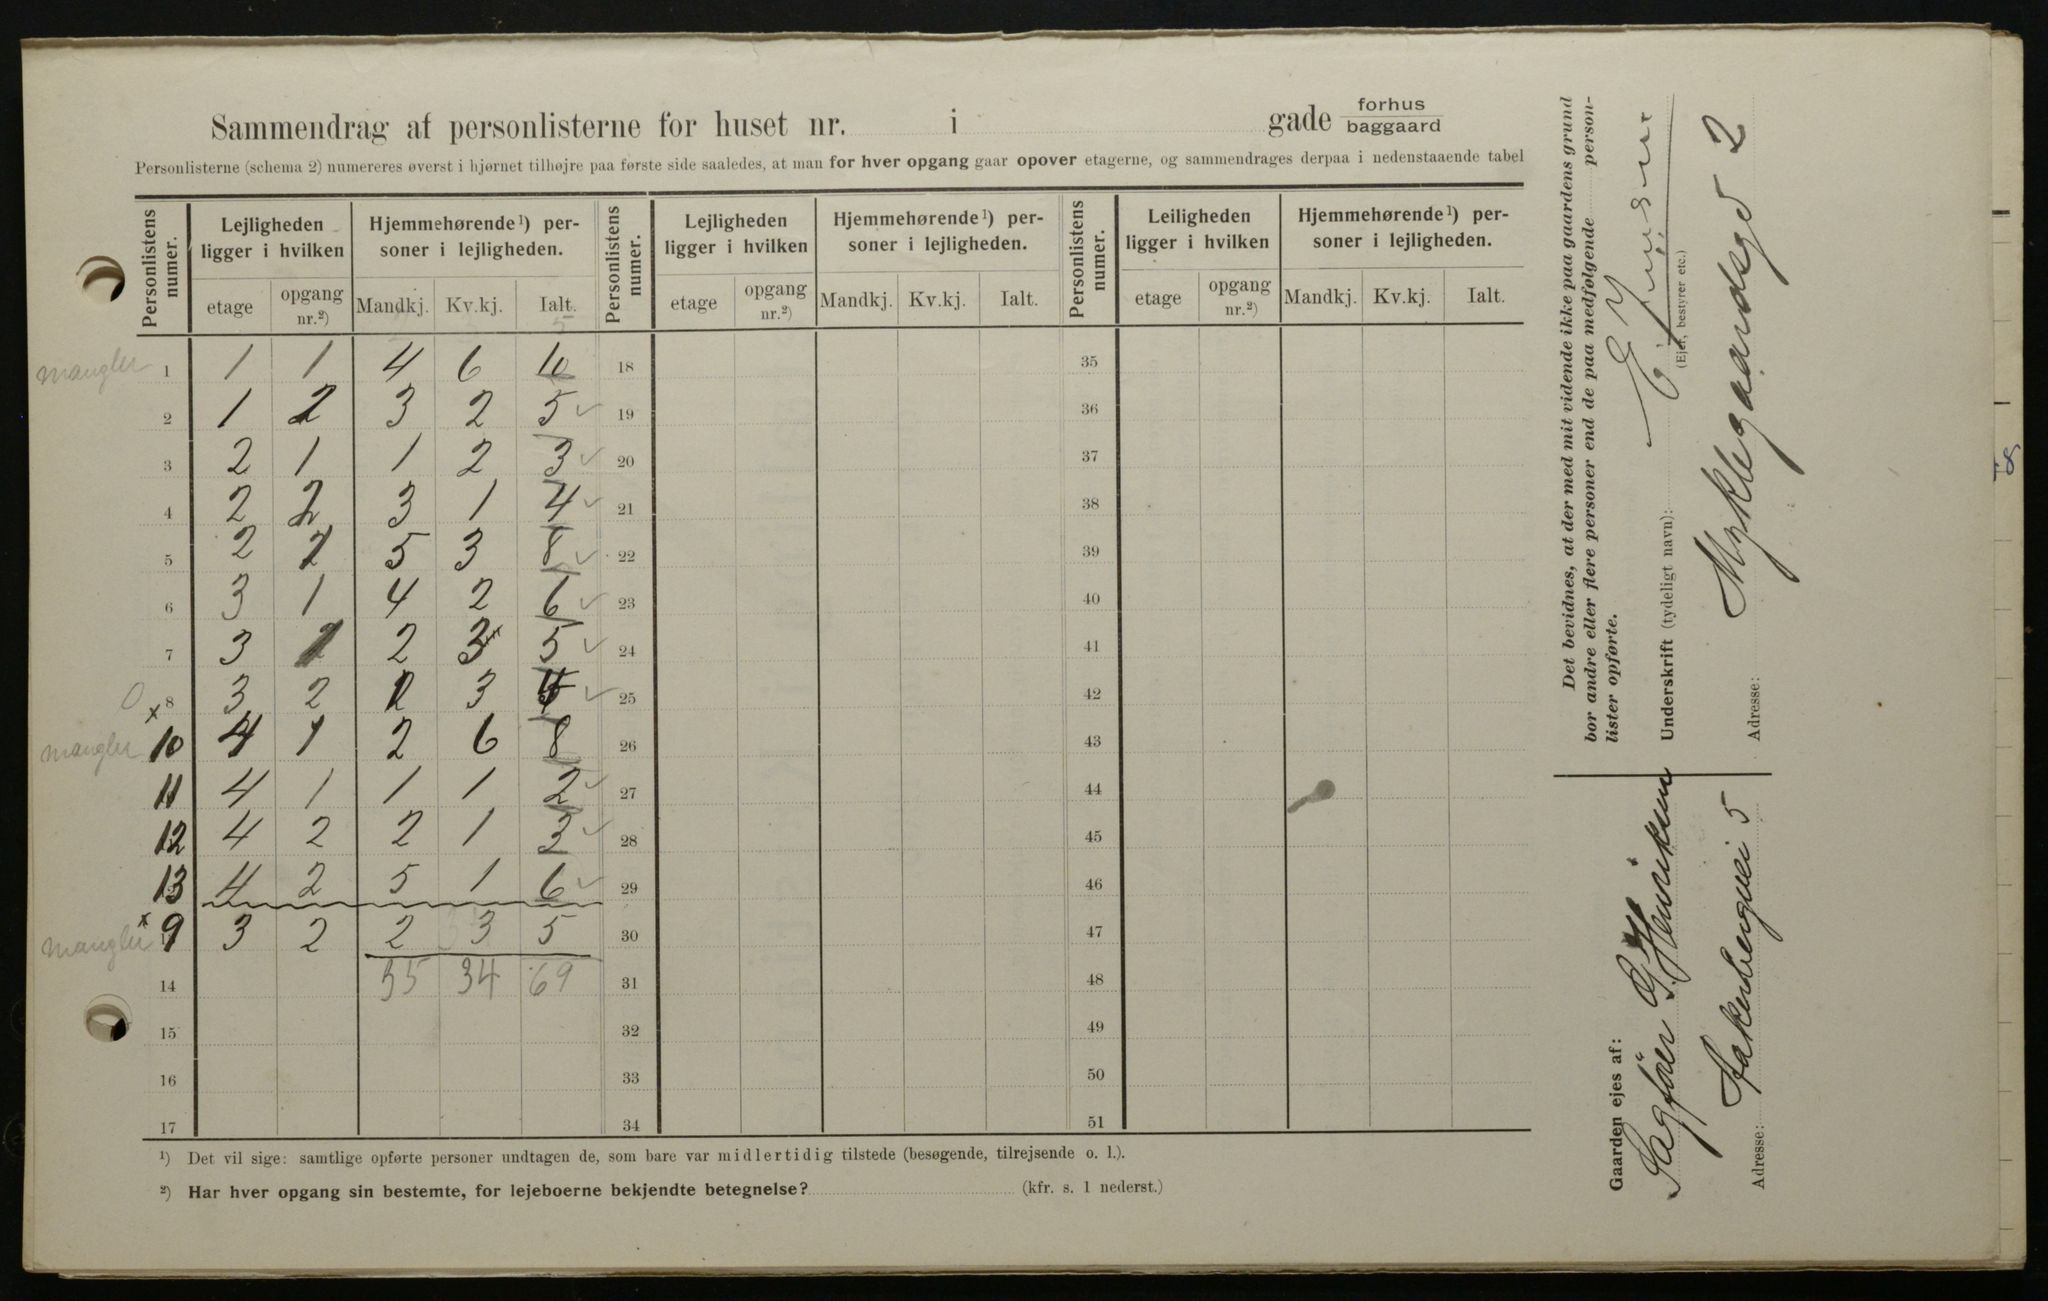 Sammendrag af personlisterne for huset nr. i gade forhus baggaard
Personlisterne (schema 2) numereres øverst i hjørnet tilhøjre paa første side saaledes, at man for hver opgang gaar opover etagerne, og sammendrages derpaa i nedenstaaende tabel
Personlistens numer. Lejligheden ligger i hvilken Hjemmehørende¹) personer i lejligheden. Personlistens numer. Lejligheden ligger i hvilken Hjemmehørende¹) personer i lejligheden. Personlistens numer. Leiligheden ligger i hvilken Hjemmehørende¹) personer i lejligheden.
etage opgang nr.²) Mandkj. Kv.kj. Ialt. etage opgang nr.²) Mandkj. Kv.kj. Ialt. etage opgang nr.²) Mandkj. Kv.kj. Ialt.
mangler 1 1 1 4 6 10 18 35
2 1 2 3 2 5 19 36
3 2 1 1 2 3 20 37
4 2 2 3 1 4 21 38
5 2 2 5 3 8 22 39
6 3 1 4 2 6 23 40
7 3 2 3 5 24 41
0 8 3 2 3 4 25 42
mangler x 10 4 1 2 6 8 26 43
11 4 1 1 1 2 27 44
12 4 2 2 1 3 28 45
13 4 2 5 1 6 29 46
mangler x 9 3 2 2 3 5 30 47
14 35 34 69 31 48
15 32 49
16 33 50
17 34 51
¹) Det vil sige: samtlige opførte personer undtagen de, som bare var midlertidig tilstede (besøgende, tilrejsende o. l.).
²) Har hver opgang sin bestemte, for lejeboerne bekjendte betegnelse? (kfr. s. 1 nederst.)
Det bevidnes, at der med mit vidende ikke paa gaardens grund
bor andre eller flere personer end de paa medfølgende personlister opførte.
Underskrift (tydeligt navn):
(Ejer, bestyrer etc.)
Adresse: Myklegaardsgd 2
Gaarden ejes af:
Sagfører Henriksen
Adresse: Aakerbergvei 5